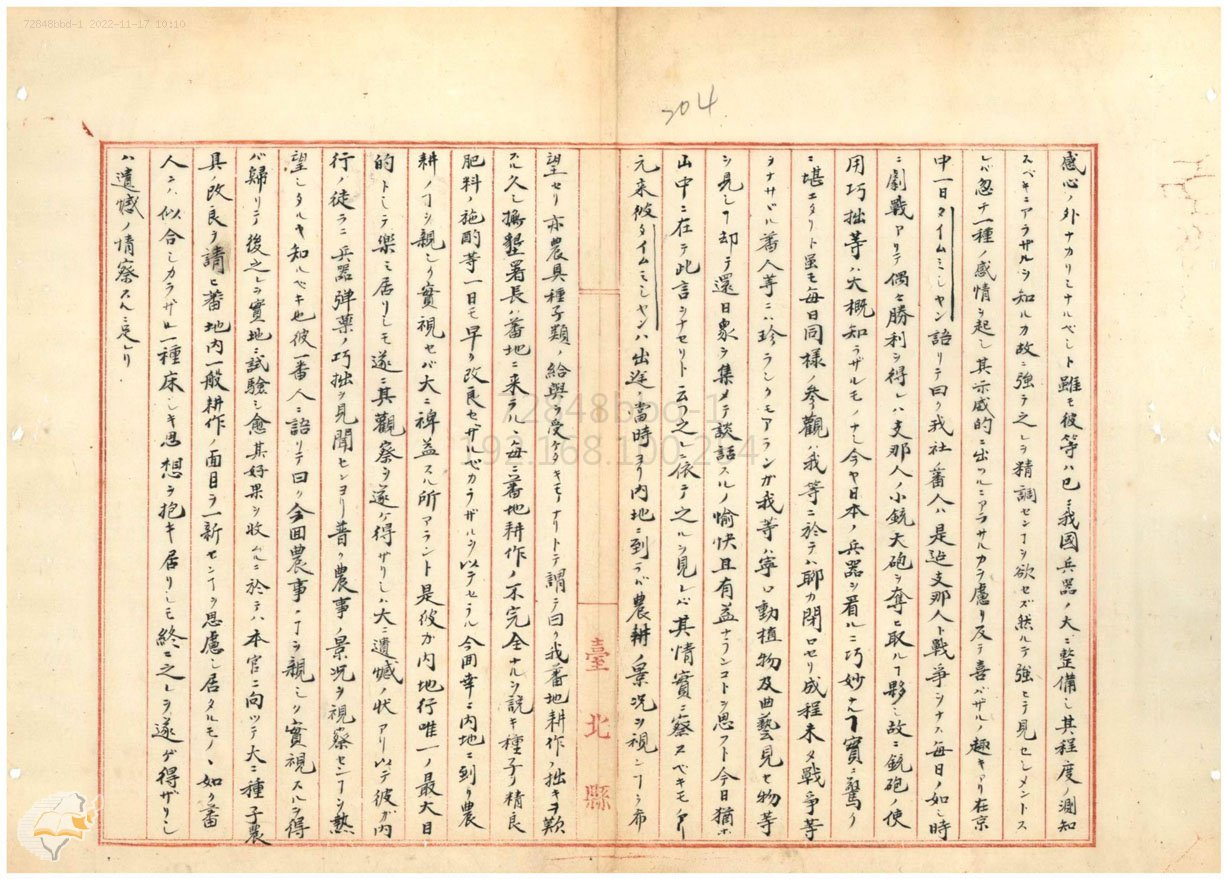 72848bbd-1 2022-11-17 10:10
204
感心ノ外ナカリシナルベシト雖モ彼等ハ已ニ我國兵器ノ大ニ整備シ其程度ノ測知
スベキニアラザルヲ知ルカ故ニ強テ之レヲ精調センヿヲ欲セズ然ルヲ強ヒテ見セシメントス
レバ忽チ一種ノ感情ヲ起シ其示威的ニ出ツルニアラサルカヲ慮リ反テ喜バザルノ趣キアリ在京
中一日タイムミシヤン語リテ曰ク我社蕃人ハ是迄支那人ト戰爭ヲナス毎日ノ如シ時
ニ劇戰アリテ偶々勝利ヲ得レハ支那人ノ小銃大砲ヲ奪ヒ取ルヿ夥シ故ニ銃砲ノ使
用巧拙等ハ大概知ラザルモノナシ今ヤ日本ノ兵器ヲ看ルニ巧妙ナルヿ實ニ驚ク
ニ堪エタリト虽モ毎日同様ノ參觀ハ我等ニ於テハ聊カ閉口セリ成程未タ戰爭等
ヲナサザル蕃人等ニハ珍ラシクモアランガ我等ハ寧ロ動植物及曲藝見セ物等
ヲ見シヿ却テ還日衆ヲ集メテ談話スルノ愉快且有益ナランコトヲ思フト今日猶ホ
山中ニ在テ此言ヲナセリト云フ之ニ依テ之レヲ見レバ其情實ニ察スベキモノアリ
元来彼タイムミシヤンハ出迎ノ當時ヨリ内地ニ到ラバ農耕ノ景况ヲ視ンヿヲ希
臺北縣
望セリ亦農具種子類ノ給與ヲ受ケタキモノナリトテ謂テ曰ク我蕃地耕作ノ拙キヲ歎
スル久シ撫墾署長ハ蕃地ニ来ラルヽ毎ニ蕃地耕作ノ不完全ナルヲ説キ種子ノ精良
肥料ノ施酌等一日モ早ク改良セザルベカラザルヲ以テセラル今回幸ニ内地ニ到リ農
耕ノヿヲ親シク實視セバ大ニ裨益スル所アラント是彼ガ内地行唯一ノ最大目
的トシテ樂ミ居リシモ遂ニ其觀察ヲ遂ケ得サリシハ大ニ遺憾ノ状アリ以テ彼ガ内
行ノ徒ラニ兵器弾藥ノ巧拙ヲ見聞センヨリ普ク農事ノ景况ヲ視察センヿヲ熱
望シタルヤ知ルベキ也彼一番人ニ語リテ曰ク今回農事ノヿヲ親シク實視スルヲ得
バ歸リテ後之レヲ實地ニ試驗シ愈其好果ヲ收ムルニ於テハ本官ニ向ツテ大ニ種子農
具ノ改良ヲ請ヒ蕃地内一般耕作ノ面目ヲ一新センヿヲ思慮シ居タルモノヽ如ク蕃
人ニハ似合シカラザル一種床シキ思想ヲ抱キ居リシモ終ニ之レヲ遂ゲ得ザリシ
ハ遺憾ノ情察スルニ足レリ
72848bbd-1